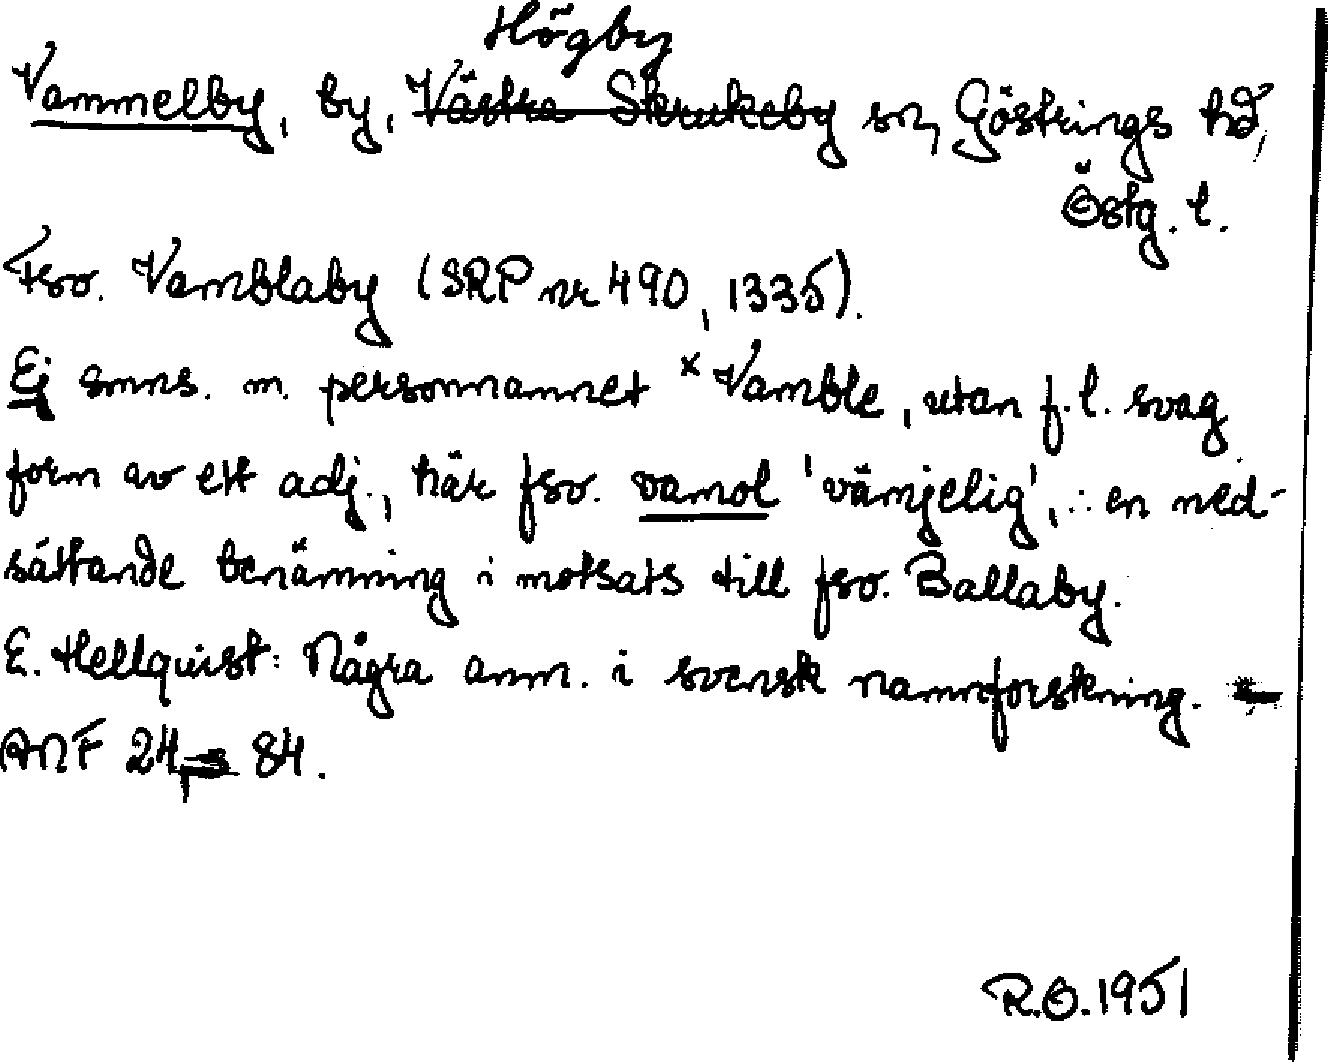 Högby
Vammelby, by, Västra Skrukeby sn, Göstrings hd,
Östg. l.
Fsv. Vamblaby (SRP nr 490, 1335).
Ej smns. m. personnamnet × Vamble, utan f.l. svag
form av ett adj., här fsv. vamol 'vämjelig', ∴ en ned-
sättande benämning i motsats till fsv. Ballaby.
E. Hellquist: Några anm. i svensk namnforskning. -
ANF 24, s 84.
R.O. 1951